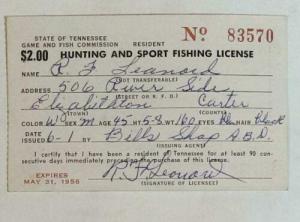 STATE OF TENNESSEE
GAME AND FISH COMMISSION RESIDENT
Nº 83570
$2.00 HUNTING AND SPORT FISHING LICENSE
NAME R. F Leonard
ADDRESS 506 River Side
(STREET OR R. F. D.)
Elizabethton Carter
(TOWN) (COUNTY)
COLOR W SEX M AGE 45 HT 5-8 WT 160 EYES HAIR Black
DATE ISSUED 6-1 Bills Shop
(ISSUING AGENT)
I certify that I have been a resident of Tennessee for at least 90 consecutive days immediately preceding the purchase of this license.
EXPIRES
MAY 31, 1956
R. F. Leonard
(SIGNATURE OF LICENSEE)